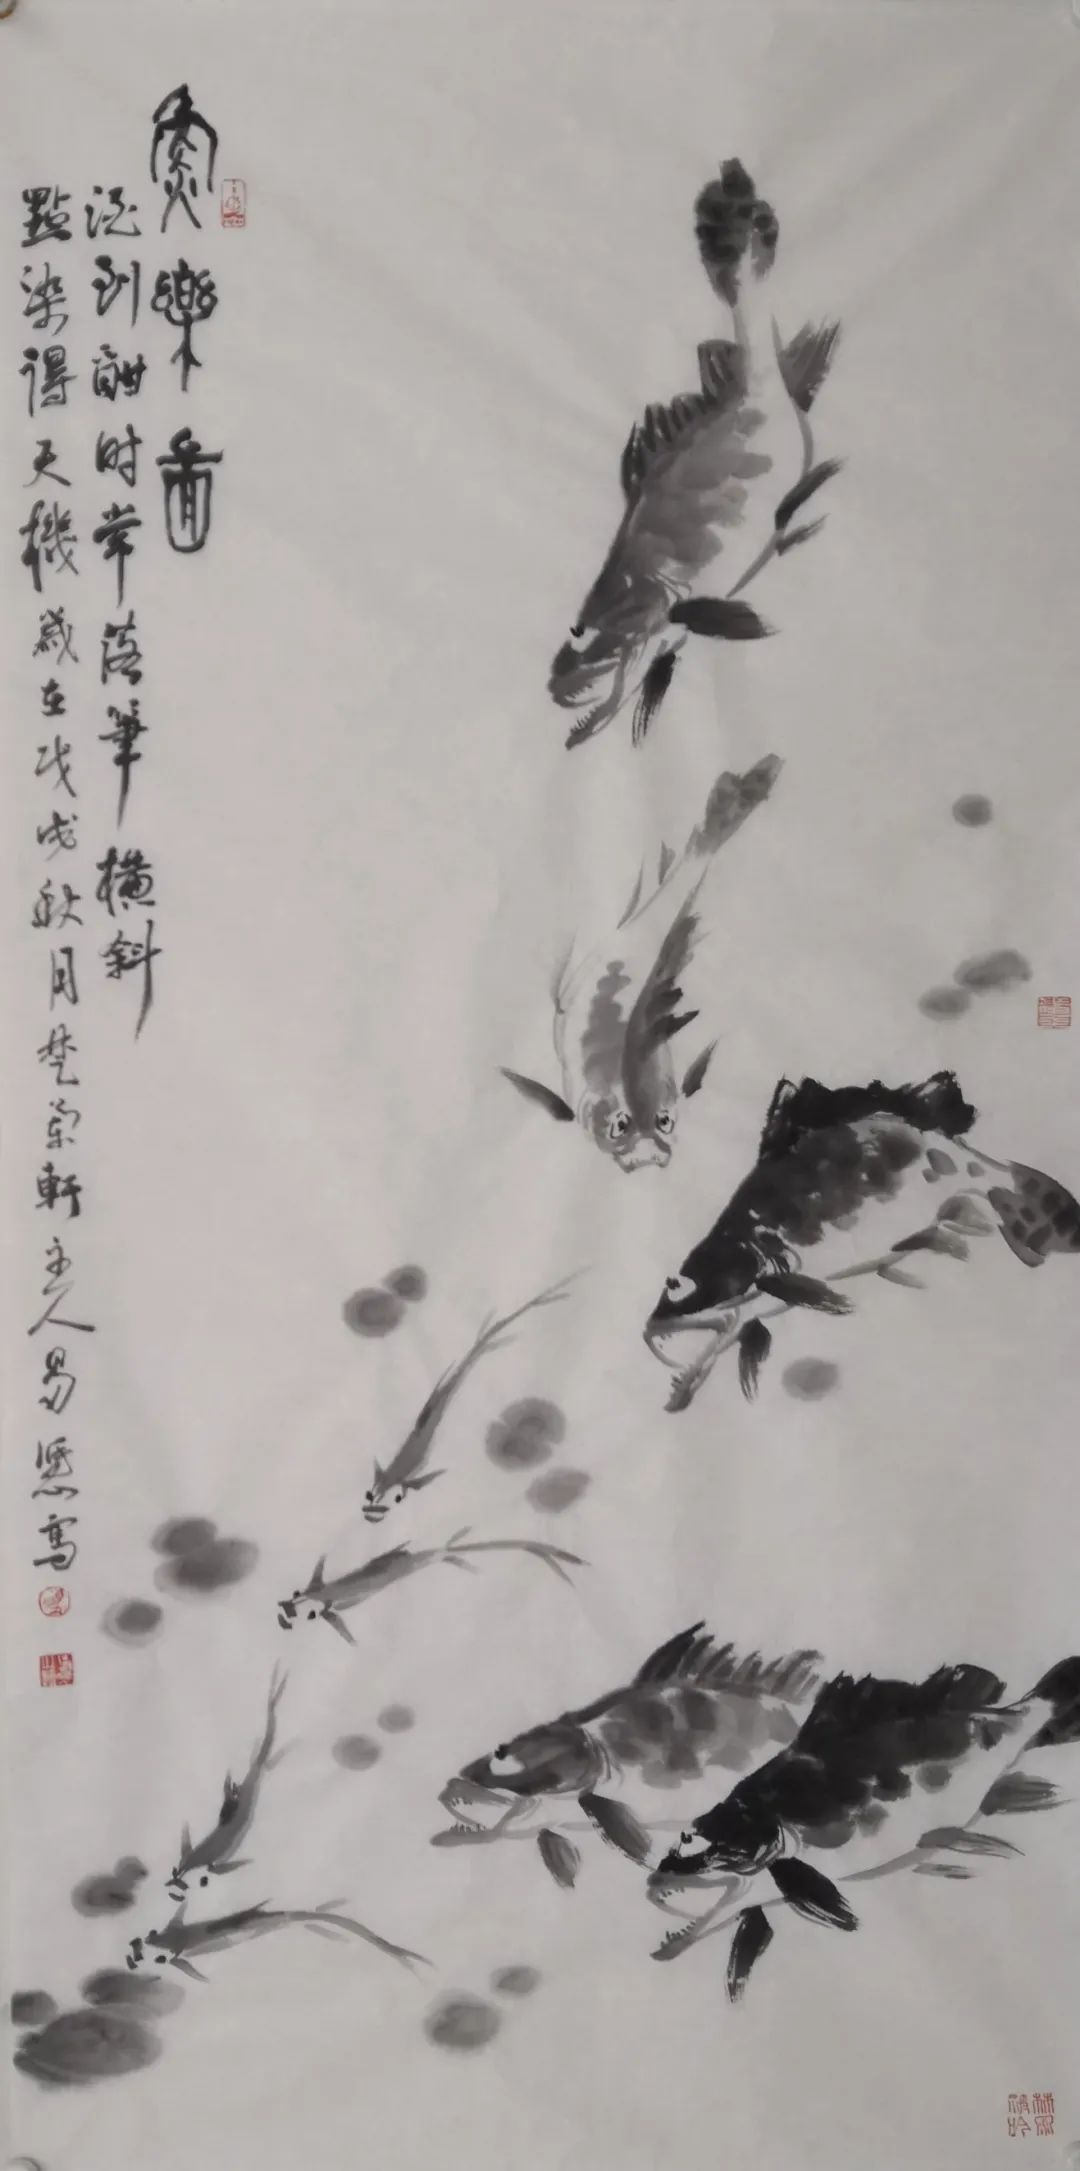 魚樂圖
酒到酣时常落筆橫斜
點染得天機歲在戊戌秋月楚蘭軒主人易憑寫